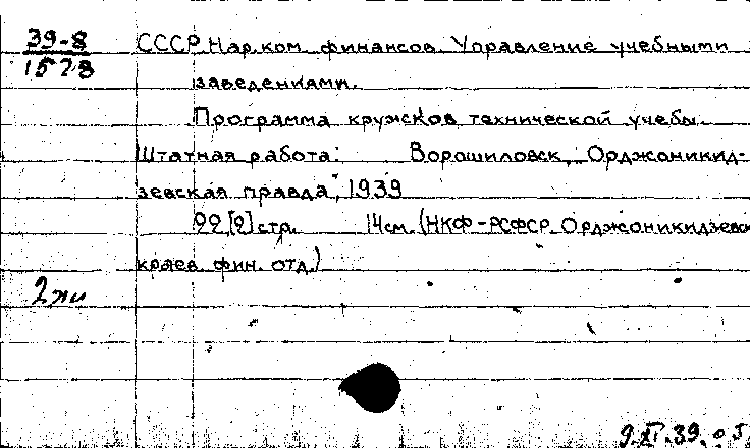 39-8
1528
СССР. Нар. ком. финансов. Управление учебными
заведениями.
Программа кружков технической учебы.
Штатная работа. Ворошиловск, „Орджоникид-
зевская правда", 1939
22, [2] стр. 14 см. (НКФ-РСФСР. Орджоникидзевск.
краев. фин. отд.)
2 жи
9.XI.39.